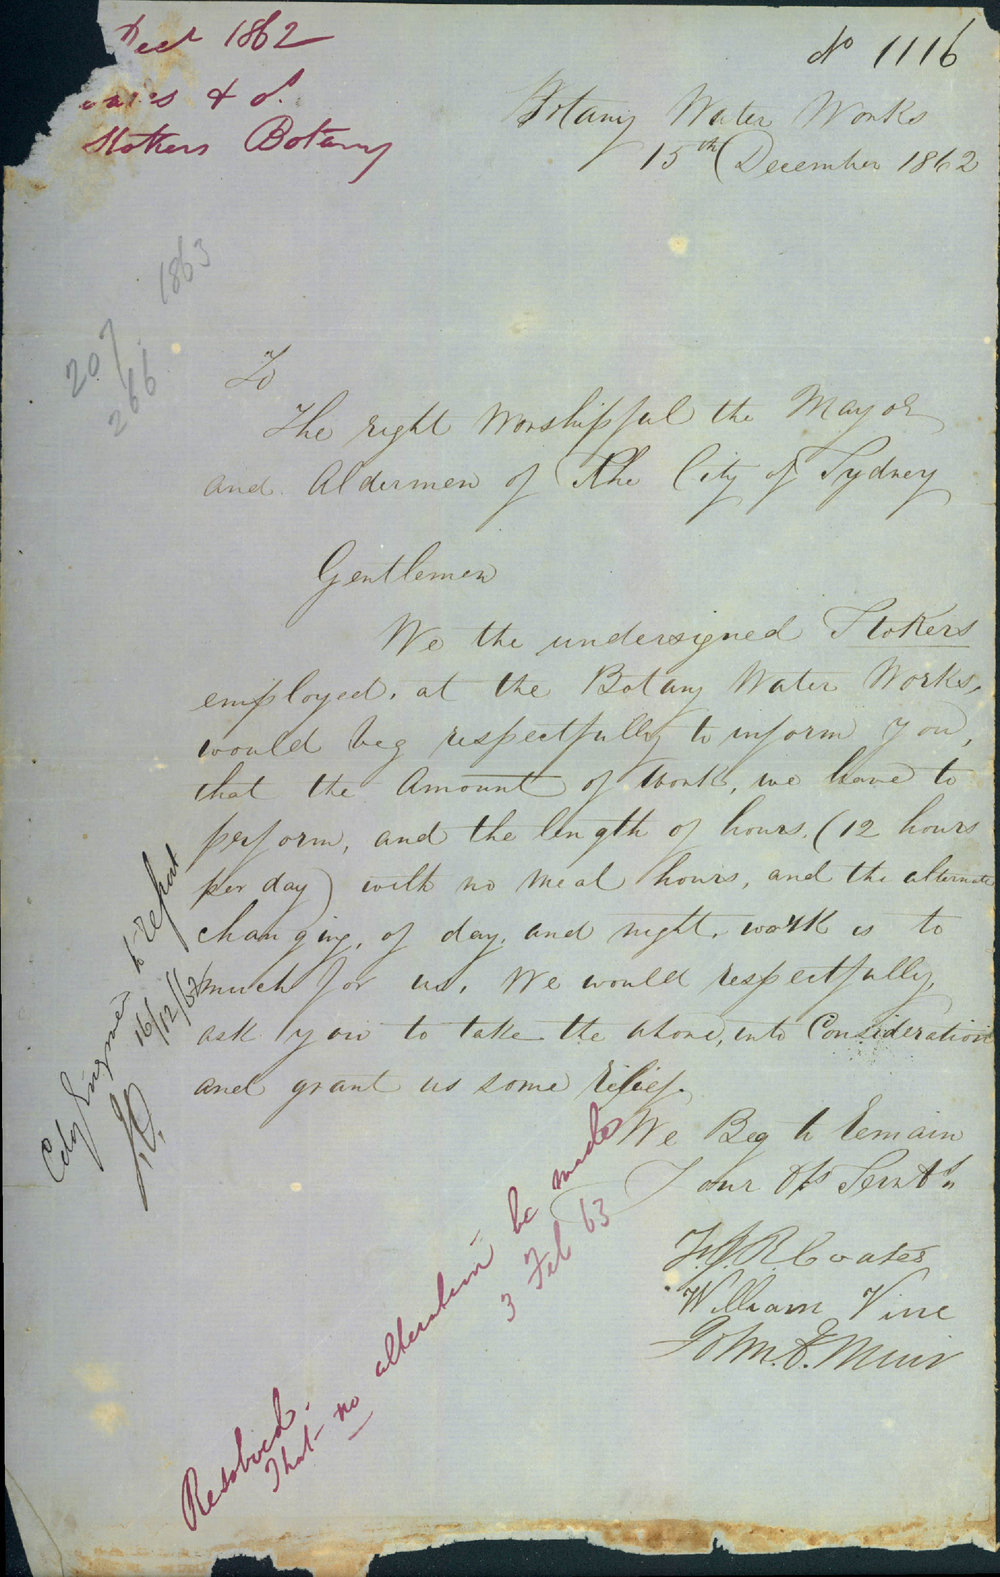 Dect 1862
& o.
Stokers Botany
No 1116
Botany Water Works
15th December 1862
1863
207
266
To
The right Worshipful the Mayor
and Aldermen of The City of Sydney
Gentlemen
We the undersigned Stokers
employed, at the Botany Water Works,
would beg respectfully to inform you,
that the Amount of work, we have to
perform, and the length of hours. (12 hours
per day) with no meal hours, and the alternate
changing, of day, and night, work is to
much for us. We would respectfully,
ask you to take the above, into Consideration
and grant us some relief.
We Beg to Remain
Your Obs Servts
Coates
William Vine
John. Muir
City Engineer to report
16/12/62
Resolved.
That no alteration be made
3 Feb 63